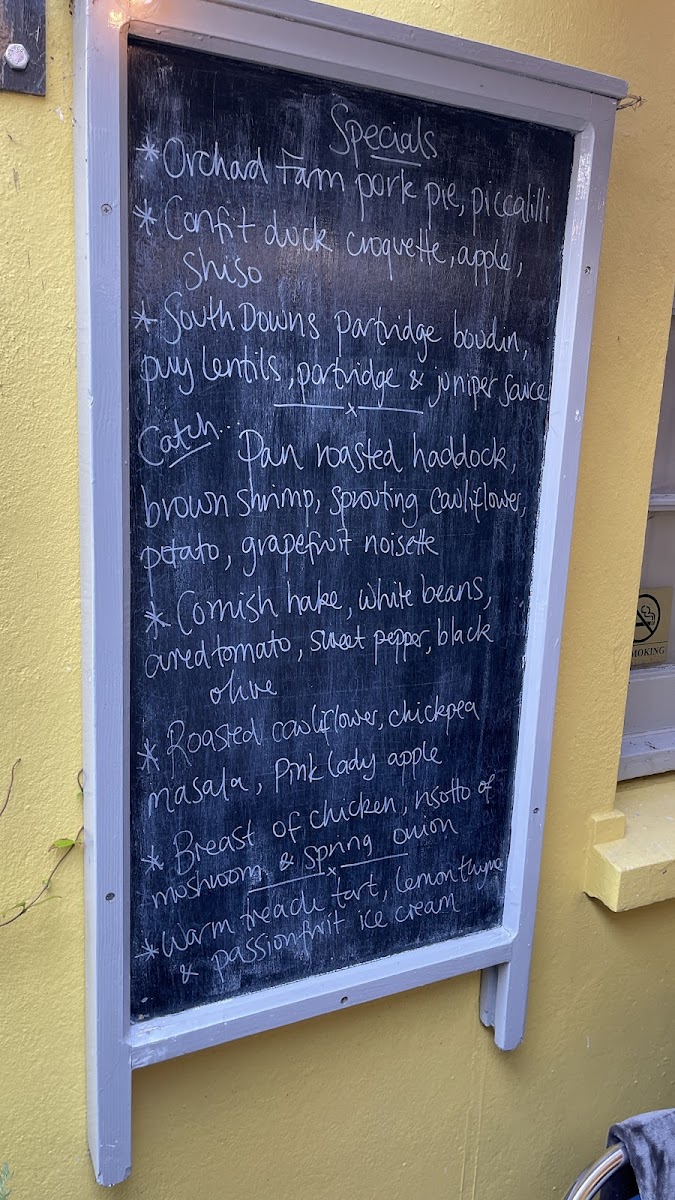 Specials
* Orchad Farm pork pie, piccalilli
* Confit duck croquette, apple,
shiso
* South Downs partridge boudin,
puy lentils, partridge & juniper sauce
x
Catch... Pan roasted haddock,
brown shrimp, sprouting cauliflower,
potato, grapefruit noisette
* Cornish hake, white beans,
ared tomato, sweet pepper, black
olive
* Roasted cauliflower, chickpea
masala, Pink lady apple
* Breast of chicken, risotto of
mushroom & spring onion
x
* Warm treacle tart, lemon thyme
& passionfruit ice cream
MOKING